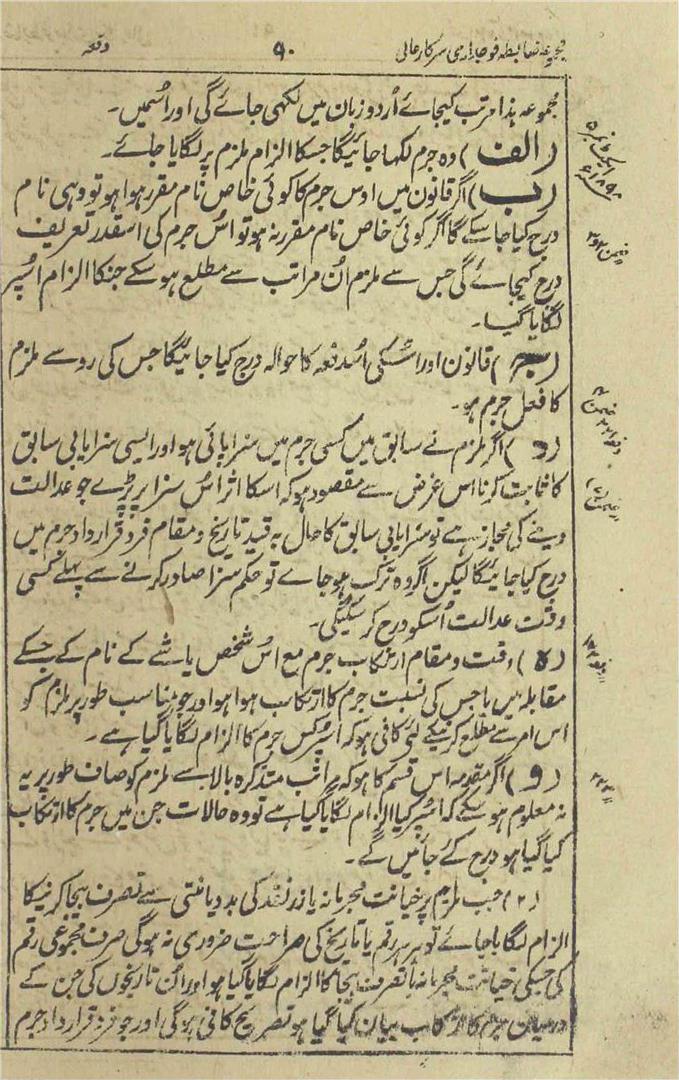 مجموعہ ضابطہ فوجداری سرکار عالی ۹۰ دفعہ
مجموعہ ہذا مرتب کیجائے اُردو زبان میں لکھی جائے گی اور اُسمیں۔
(الف) وہ جرم لکھا جائیگا جسکا الزام ملزم پر لگایا جائے۔
(ب) اگر قانون میں اوس جرم کا کوئی خاص نام مقرر ہوا ہو تو وہی نام
درج کیا جا سکے گا اگر کوئی خاص نام مقرر نہ ہو تو اُس جرم کی اسقدر تعریف
درج کیجائے گی جس سے ملزم اُن مراتب سے مطلع ہو سکے جنکا الزام اُسپر
لگایا گیا۔
(ج) قانون اور اُسکی اُس دفعہ کا حوالہ درج کیا جائیگا جس کی رو سے ملزم
کا فعل جرم ہو۔
(د) اگر ملزم نے سابق میں کسی جرم میں سزا پائی ہو اور ایسی سزایابی سابق
کا ثابت کرنا اس غرض سے مقصود ہو کہ اسکا اثر اُس سزا پر پڑے جو عدالت
دینے کی مجاز ہے تو سزایابی سابق کا حال بہ قید تاریخ و مقام فرد قرارداد جرم میں
درج کیا جائیگا لیکن اگر وہ ترک ہو جاے تو حکم سزا صادر کرنے سے پہلے کسی
وقت عدالت اُسکو درج کر سکیگی۔
(ہ) وقت و مقام ارتکاب جرم مع اُس شخص یا شے کے نام کے جسکے
مقابلہ میں یا جس کی نسبت جرم کا ارتکاب ہوا ہو اور جو مناسب طور پر ملزم کو
اس امر سے مطلع کرنیکے لئے کافی ہو کہ اُسپر کس جرم کا الزام لگایا گیا ہے۔
(و) اگر مقدمہ اس قسم کا ہو کہ مراتب متذکرہ بالا سے ملزم کو صاف طور پر یہ
نہ معلوم ہو سکے کہ اُسپر کیا الزام لگایا گیا ہے تو وہ حالات جن میں جرم کا ارتکاب
کیا گیا ہو درج کئے جائیں گے۔
(۲) جب ملزم پر خیانت مجرمانہ یا زر نقد کی بد دیانتی سے تصرف بیجا کرنیکا
الزام لگایا جائے تو ہر ہر رقم یا تاریخ کی صراحت ضروری نہ ہوگی صرف مجموعی رقم
کی جسکی خیانت مجرمانہ یا تصرف بیجا کا الزام لگایا گیا ہو اور اُن تاریخوں کی جن کے
درمیان جرم کا ارتکاب بیان کیا گیا ہو تصریح کافی ہوگی اور جو فرد قرارداد جرم